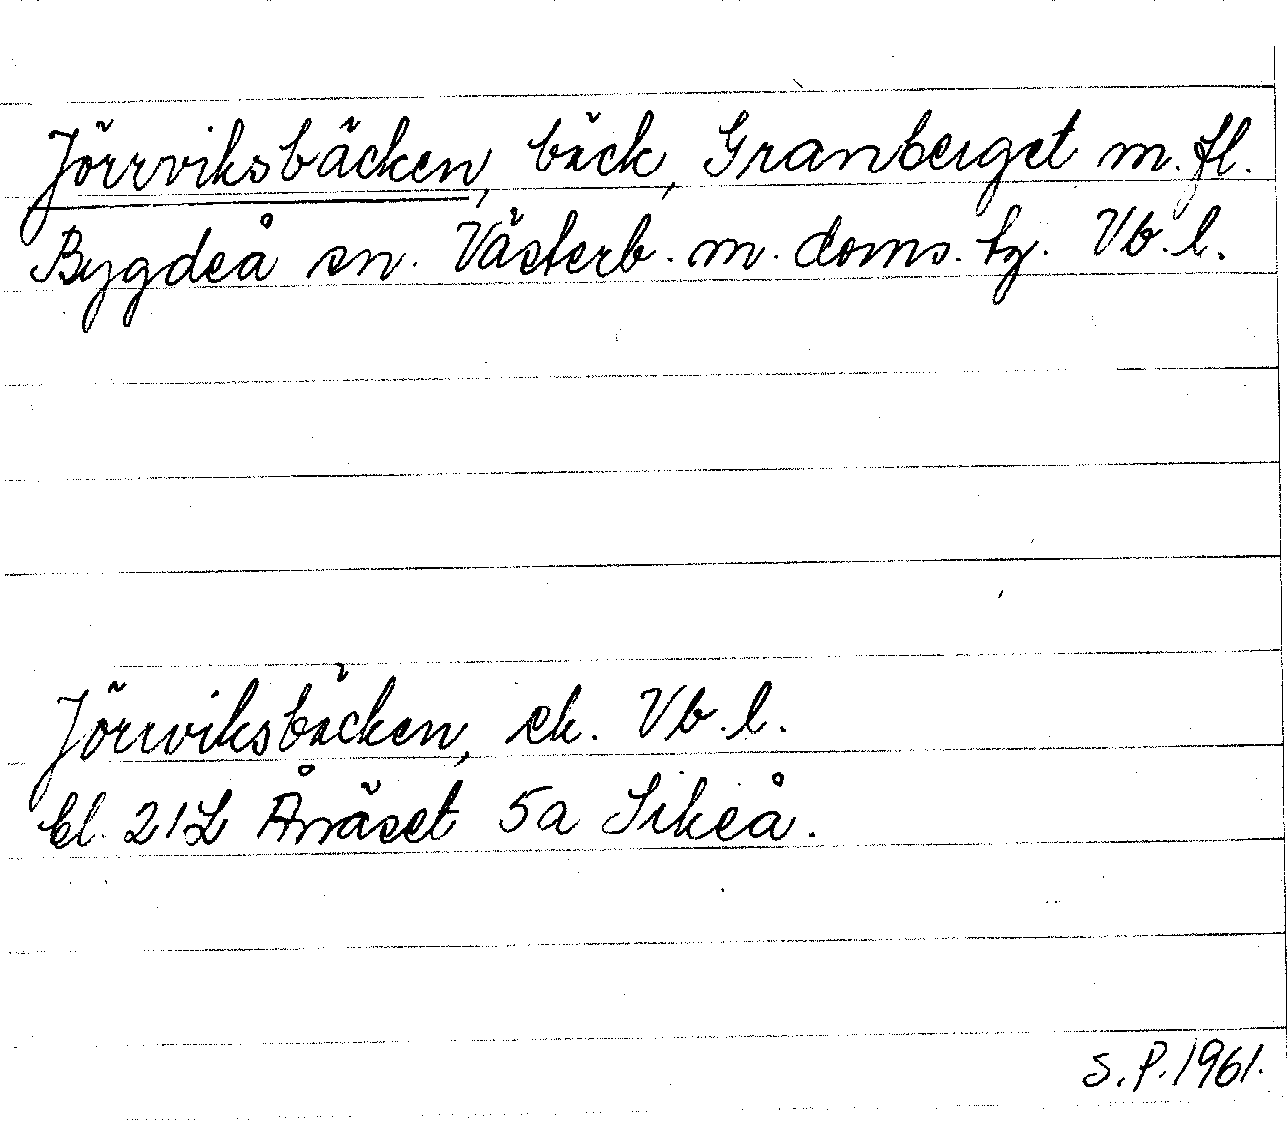 Jörrviksbäcken, bäck, Granberget m. fl.
Bygdeå sn. Västerb. m. doms. tg. Vb. l.
Jörrviksbäcken, ek. Vb. l.
bl. 21L Ånäset 5a Sikeå.
S. P. 1961.